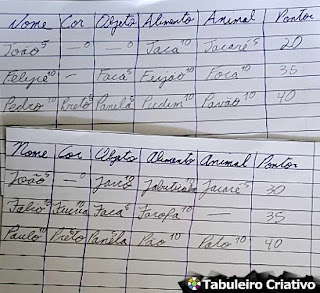 Nome Cor Objeto Alimento Animal Pontos
João 5 — 0 — 0 Jaca 10 Jacaré 5 20
Felipe 10 — Faca 5 Feijão 10 Foca 10 35
Pedro 10 Preto 5 Panela 5 Pudim 10 Pavão 10 40
Nome Cor Objeto Alimento Animal Pontos
João 5 — 0 Jabuticaba Jacaré 5 30
Fabio 10 Faca 5 Farofa 10 — 35
Paulo 10 Preto 5 Panela 5 Pão 10 Pato 10 40
Tabuleiro Criativo